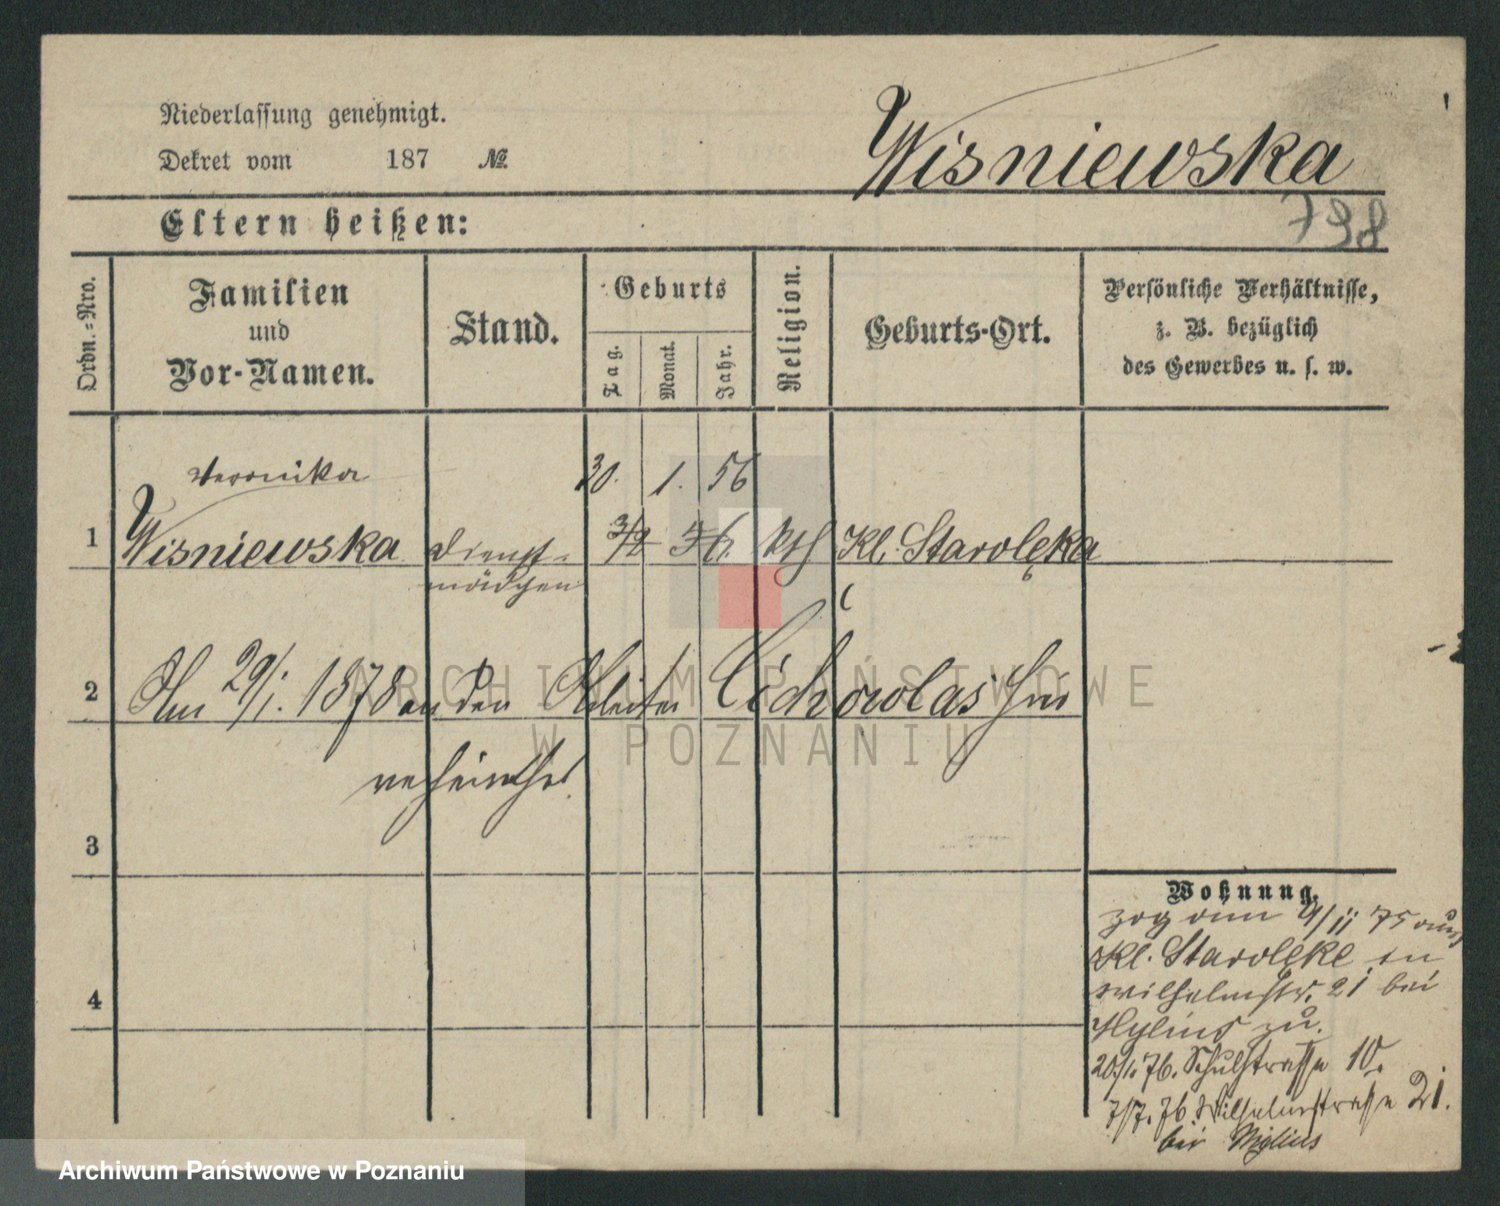 Niederlassung genehmigt.
Dekret vom 187 №
Wisniewska
798
Eltern heißen:
Ordn.=Nro.
Familien
und
Vor-Namen.
Stand.
Geburts
Tag.
Monat.
Jahr.
Religion.
Geburts-Ort.
Persönliche Verhältnisse,
z. B. bezüglich
des Gewerbes u. s. w.
Veronika 30. 1. 56
1 Wisniewska Dienst= kth Kl. Starolęka
mädchen
2 Am 29/1. 1878 an den Arbeiter hier
verheirathet.
3
Wohnung.
zog am 9/11 75 aus
Kl. Starolęke in
Wilhelmstr. 21 bei
Mylius zu.
4
20/1. 76. Schulstrasse 10.
7/7. 76 Wilhelmstrasse 21.
bei Mylius
ARCHIWUM PAŃSTWOWE
W POZNANIU
Archiwum Państwowe w Poznaniu